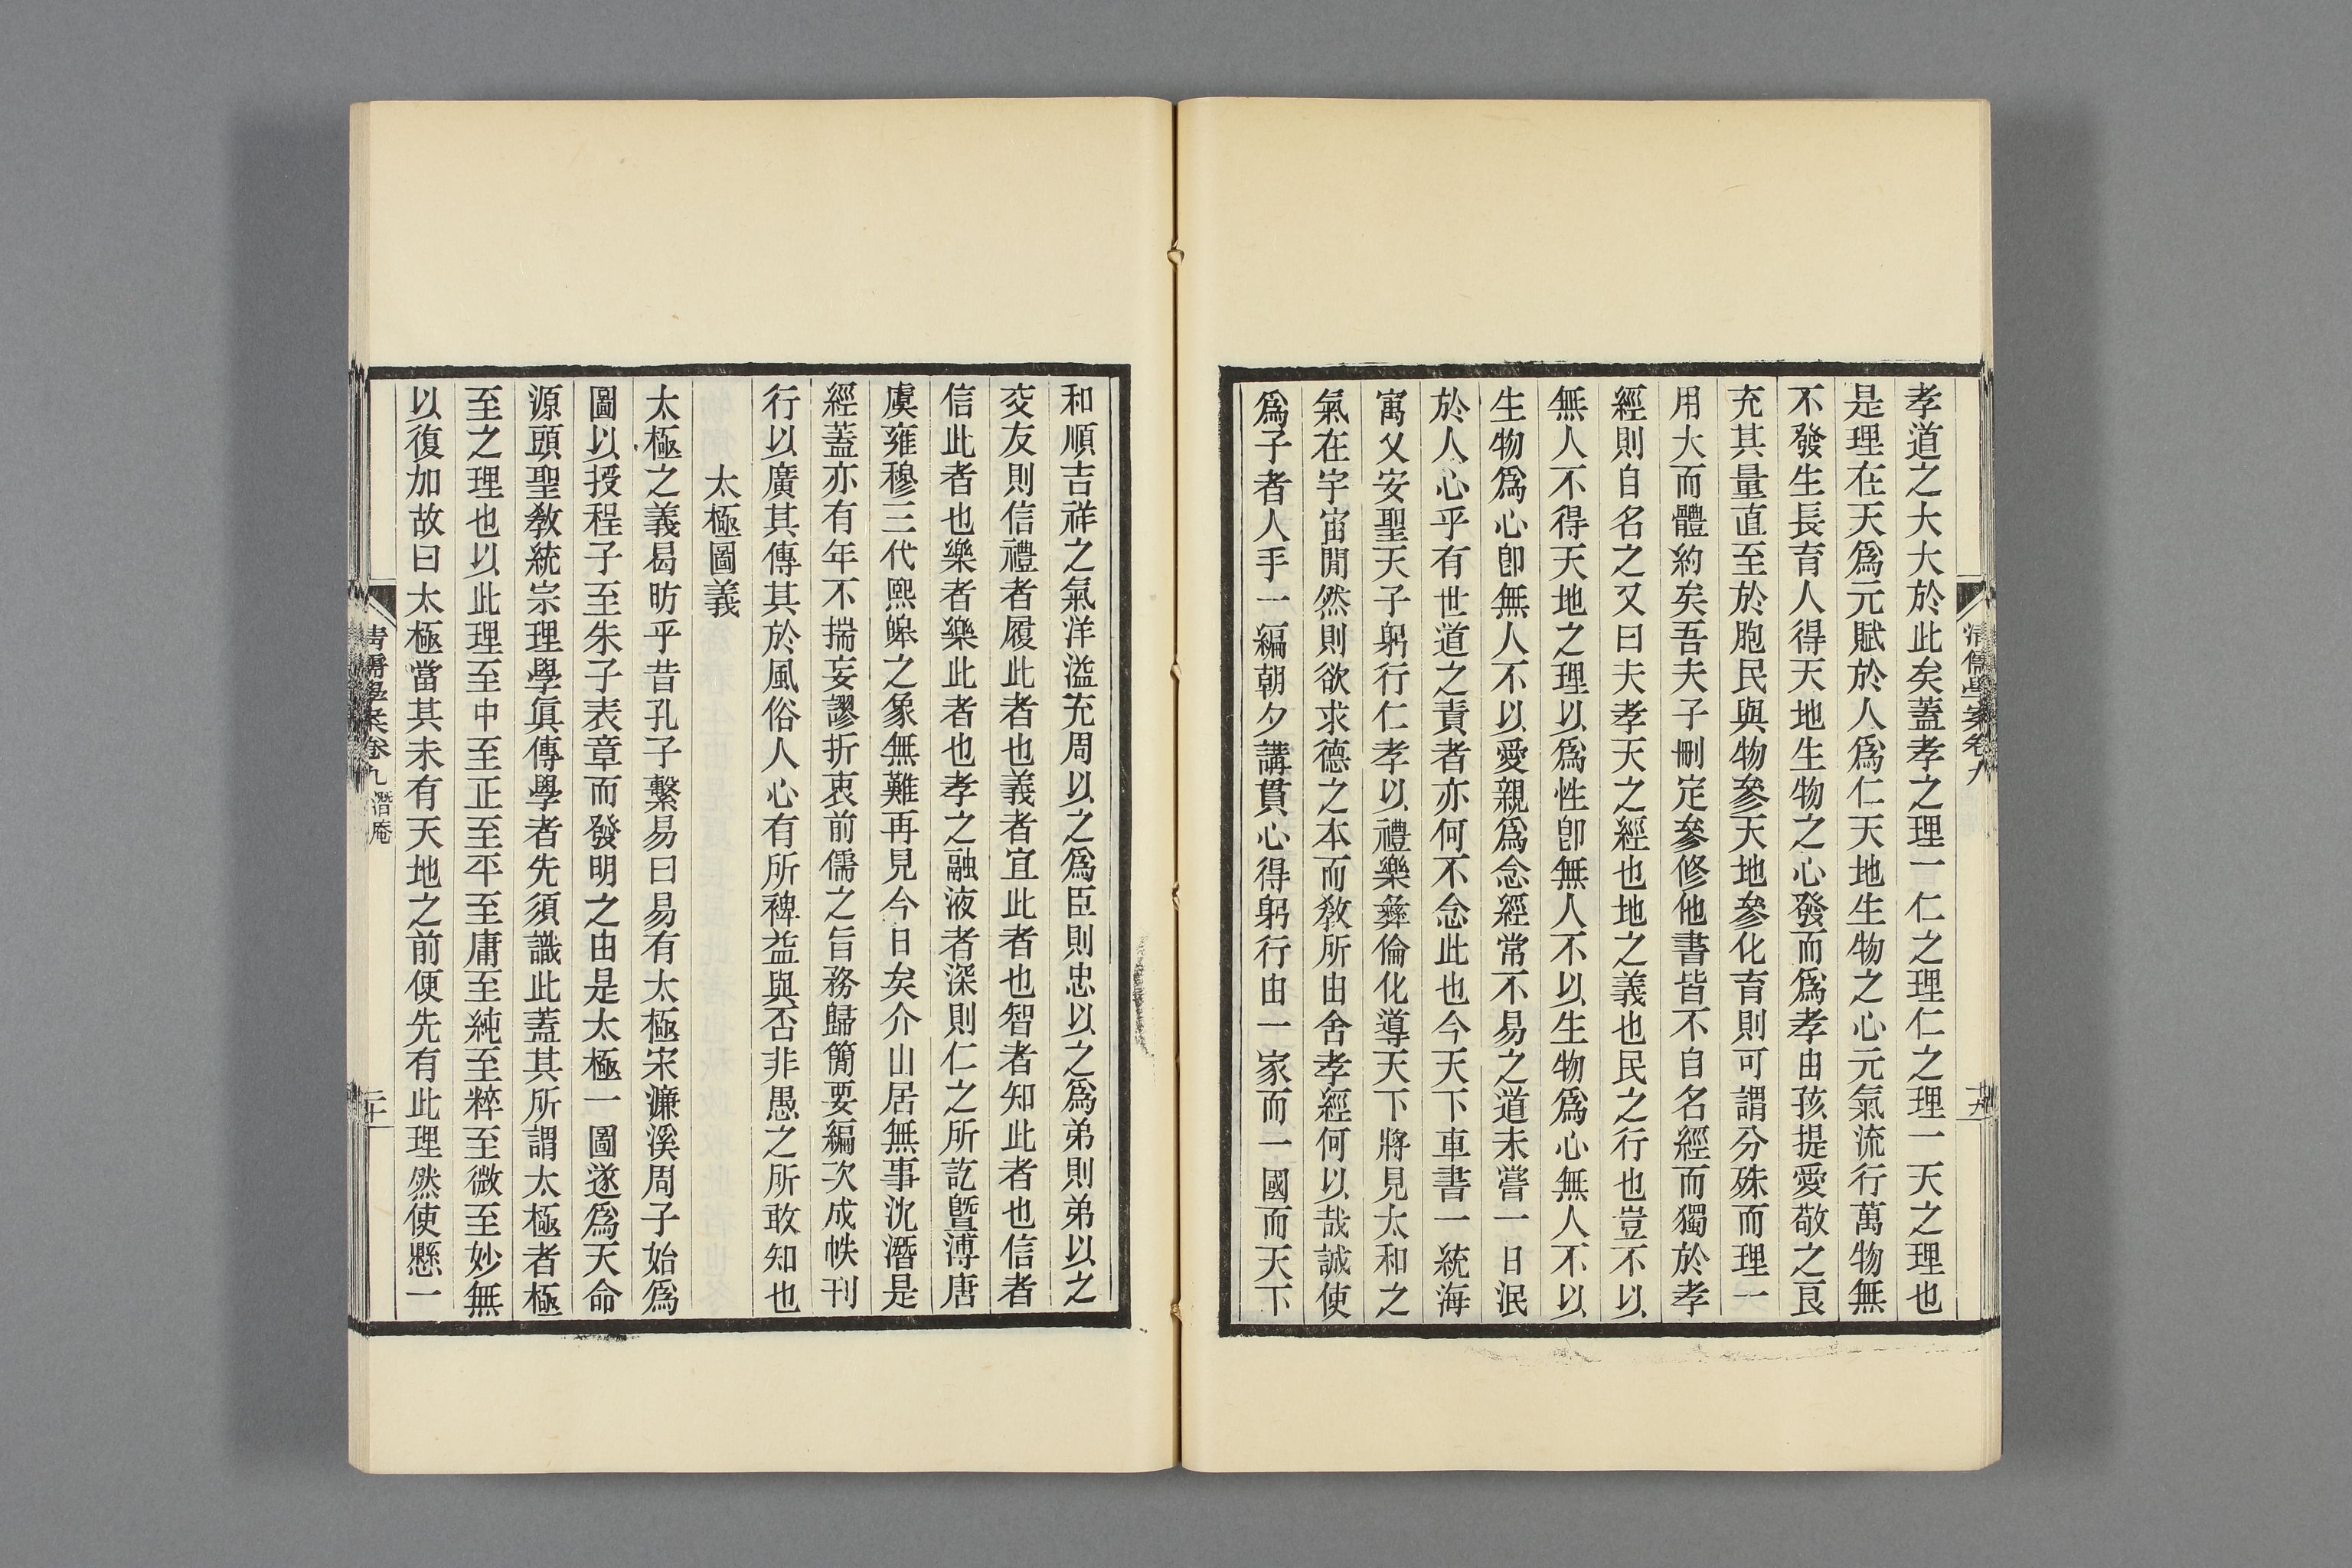 清儒學案卷九
十九
孝道之大大於此矣蓋孝之理一仁之理仁之理一天之理也
是理在天爲元賦於人爲仁天地生物之心元氣流行萬物無
不發生長育人得天地生物之心發而爲孝由孩提愛敬之良
充其量直至於胞民與物參天地參化育則可謂分殊而理一
用大而體約矣吾夫子刪定參修他書皆不自名經而獨於孝
經則自名之又曰夫孝天之經也地之義也民之行也豈不以
無人不得天地之理以爲性卽無人不以生物爲心無人不以
生物爲心卽無人不以愛親爲念經常不易之道未嘗一日泯
於人心乎有世道之責者亦何不念此也今天下車書一統海
寓乂安聖天子躬行仁孝以禮樂彝倫化導天下將見太和之
氣在宇宙閒然則欲求德之本而敎所由舍孝經何以哉誠使
爲子者人手一編朝夕講貫心得躬行由一家而一國而天下
和順吉祥之氣洋溢充周以之爲臣則忠以之爲弟則弟以之
交友則信禮者履此者也義者宜此者也智者知此者也信者
信此者也樂者樂此者也孝之融液者深則仁之所訖曁溥唐
虞雍穆三代熙皞之象無難再見今日矣介山居無事沈潛是
經蓋亦有年不揣妄謬折衷前儒之旨務歸簡要編次成帙刊
行以廣其傳其於風俗人心有所裨益與否非愚之所敢知也
太極圖義
太極之義曷昉乎昔孔子繫易曰易有太極宋濂溪周子始爲
圖以授程子至朱子表章而發明之由是太極一圖遂爲天命
源頭聖敎統宗理學眞傳學者先須識此蓋其所謂太極者極
至之理也以此理至中至正至平至庸至純至粹至微至妙無
以復加故曰太極當其未有天地之前便先有此理然使懸一
清儒學案卷九 潛庵
二十